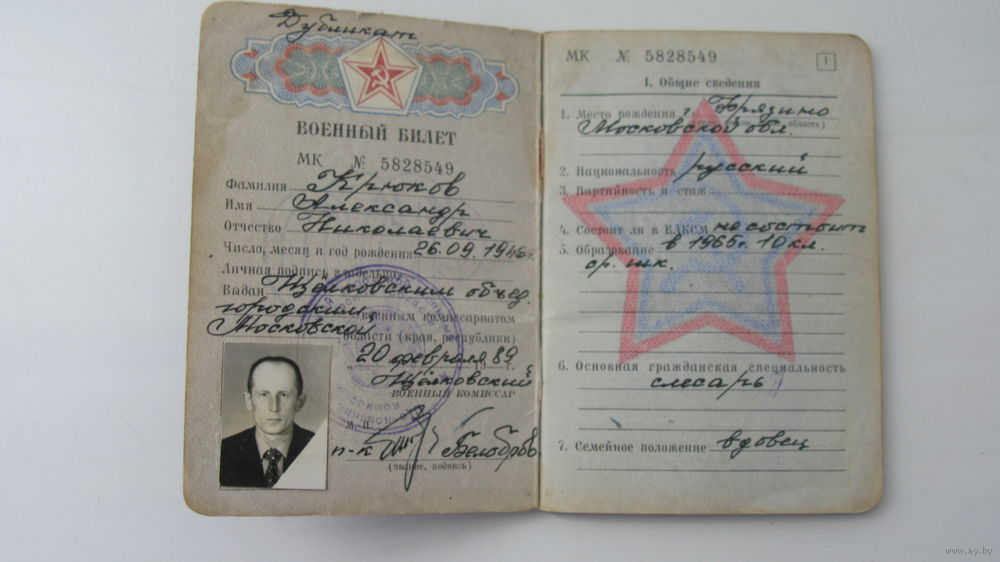 Дубликат
ВОЕННЫЙ БИЛЕТ
МК № 5828549
Фамилия Крюков
Имя Александр
Отчество Николаевич
Число, месяц и год рождения 26.09.1946г.
Личная подпись владельца
Выдан Щёлковским объед.
городским военным комиссариатом
Московской области (края, республики)
20 февраля 1989 г.
Щёлковский
ВОЕННЫЙ КОМИССАР
М. П.
п-к Белобров
(звание, подпись)
МК № 5828549
1
I. Общие сведения
1. Место рождения г. Фрязино
Московской обл.
2. Национальность русский
3. Партийность и стаж
4. Состоит ли в ВЛКСМ не состоит
5. Образование в 1965г. 10 кл.
ср. шк.
6. Основная гражданская специальность
слесарь
7. Семейное положение вдовец
www.ay.by